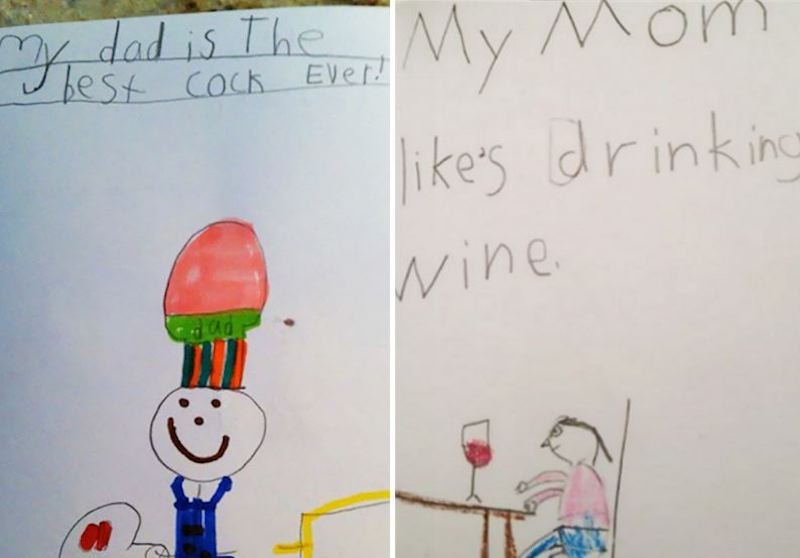 My dad is The
best cock Ever!
dad
My Mom
like's drinking
wine.